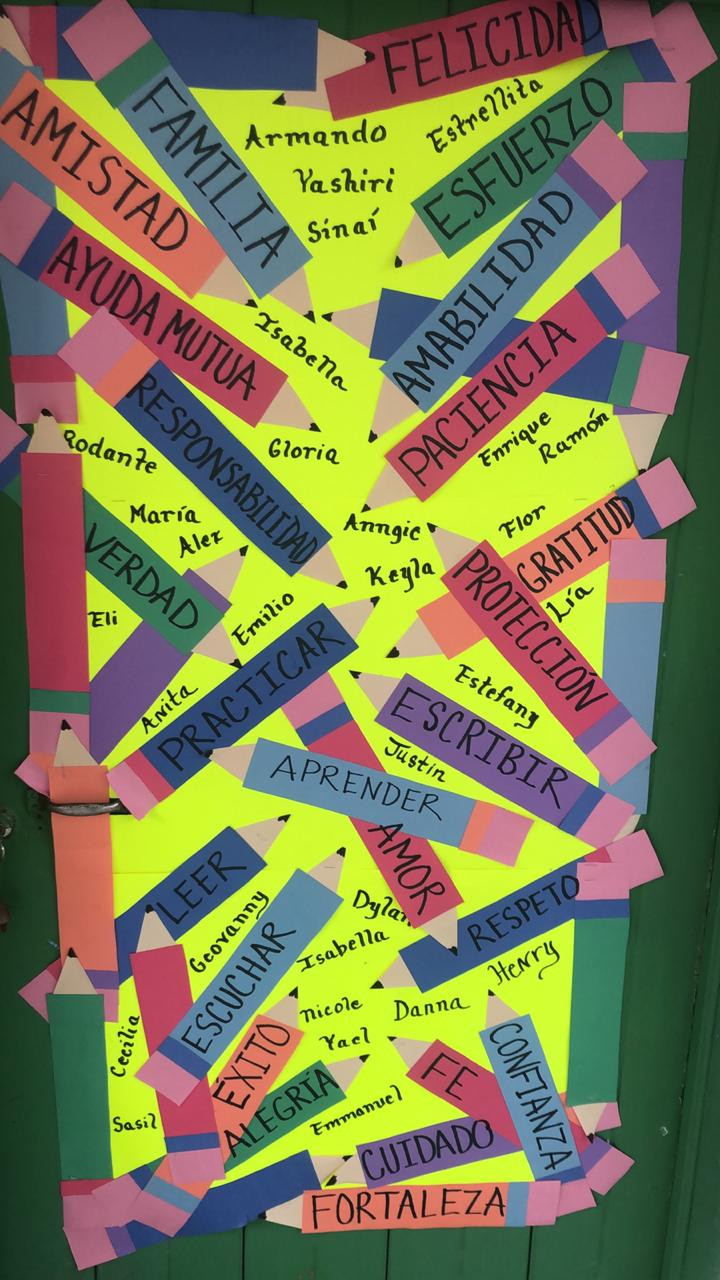 FELICIDAD
FAMILIA
Estrellita
Armando
ESFUERZO
AMISTAD
Yashiri
Sinaí
AMABILIDAD
AYUDA MUTUA
Isabella
PACIENCIA
RESPONSABILIDAD
Gloria
Enrique
Ramón
Rodante
María
Alex
Anngie
Flor
GRATITUD
VERDAD
Keyla
PROTECCIÓN
Lía
Eli
Emilio
PRACTICAR
Anita
Estefany
ESCRIBIR
Justin
APRENDER
AMOR
LEER
Geovanny
Dylan
RESPETO
ESCUCHAR
Isabella
Henry
Nicole
Danna
Cecilia
Yael
ÉXITO
FE
CONFIANZA
ALEGRÍA
Emmanuel
Sasil
CUIDADO
FORTALEZA